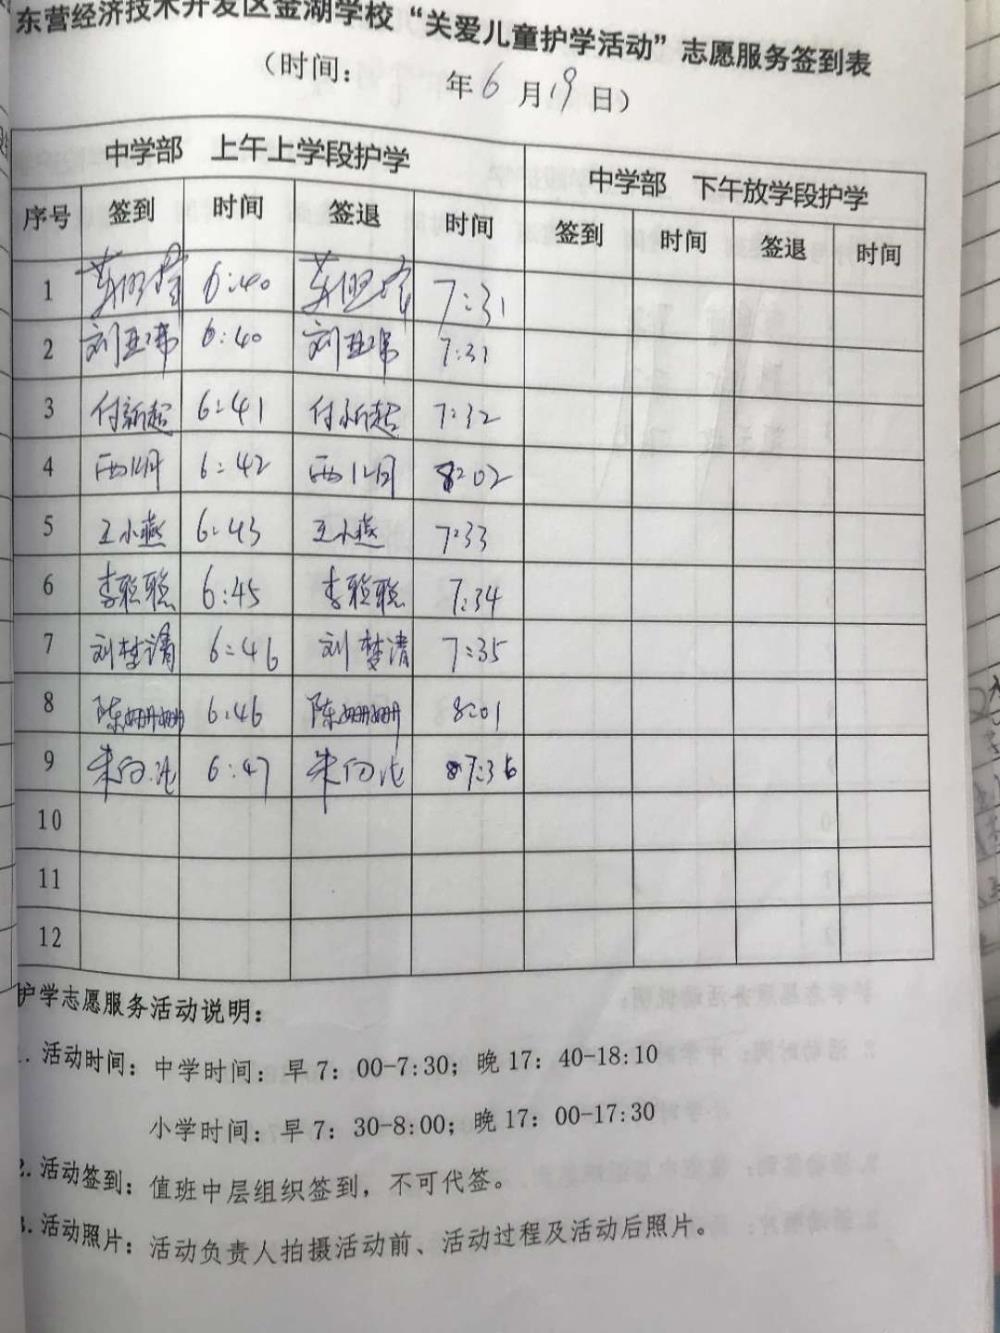 东营经济技术开发区金湖学校“关爱儿童护学活动”志愿服务签到表
（时间： 年6月19日）
中学部 上午上学段护学 中学部 下午放学段护学
序号 签到 时间 签退 时间 签到 时间 签退 时间
1 6:40 7:31
2 刘亚琪 6:40 刘亚琪 7:31
3 付新超 6:41 付新超 7:32
4 6:42 8:02
5 王小燕 6:43 王小燕 7:33
6 李聪聪 6:45 李聪聪 7:34
7 刘梦清 6:46 刘梦清 7:35
8 陈姗姗 6:46 陈姗姗 8:01
9 6:47 7:36
10
11
12
护学志愿服务活动说明：
1. 活动时间：中学时间：早7：00-7:30；晚17：40-18:10
小学时间：早7：30-8:00；晚17：00-17:30
2. 活动签到：值班中层组织签到，不可代签。
3. 活动照片：活动负责人拍摄活动前、活动过程及活动后照片。